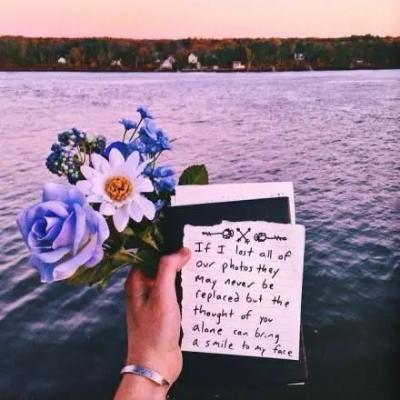 If I lost all of
our photos they
may never be
replaced but the
thought of you
alone can bring
a smile to my face